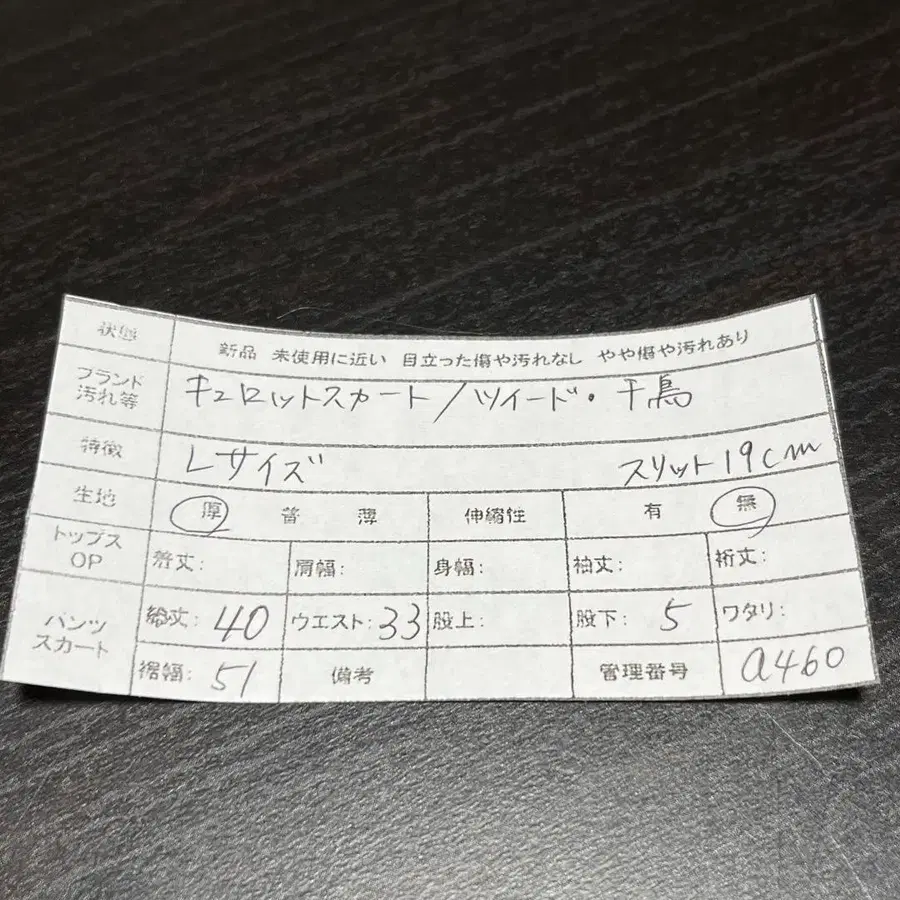 状態 新品 未使用に近い 目立った傷や汚れなし やや傷や汚れあり
ブランド 汚れ等 キュロットスカート/ツイード・千鳥
特徴 Lサイズ スリット19cm
生地 厚 普 薄 伸縮性 有 無
トップス OP 着丈: 肩幅: 身幅: 袖丈: 裄丈:
パンツ スカート 総丈: 40 ウエスト: 33 股上: 股下: 5 ワタリ:
裾幅: 51 備考 管理番号 a460